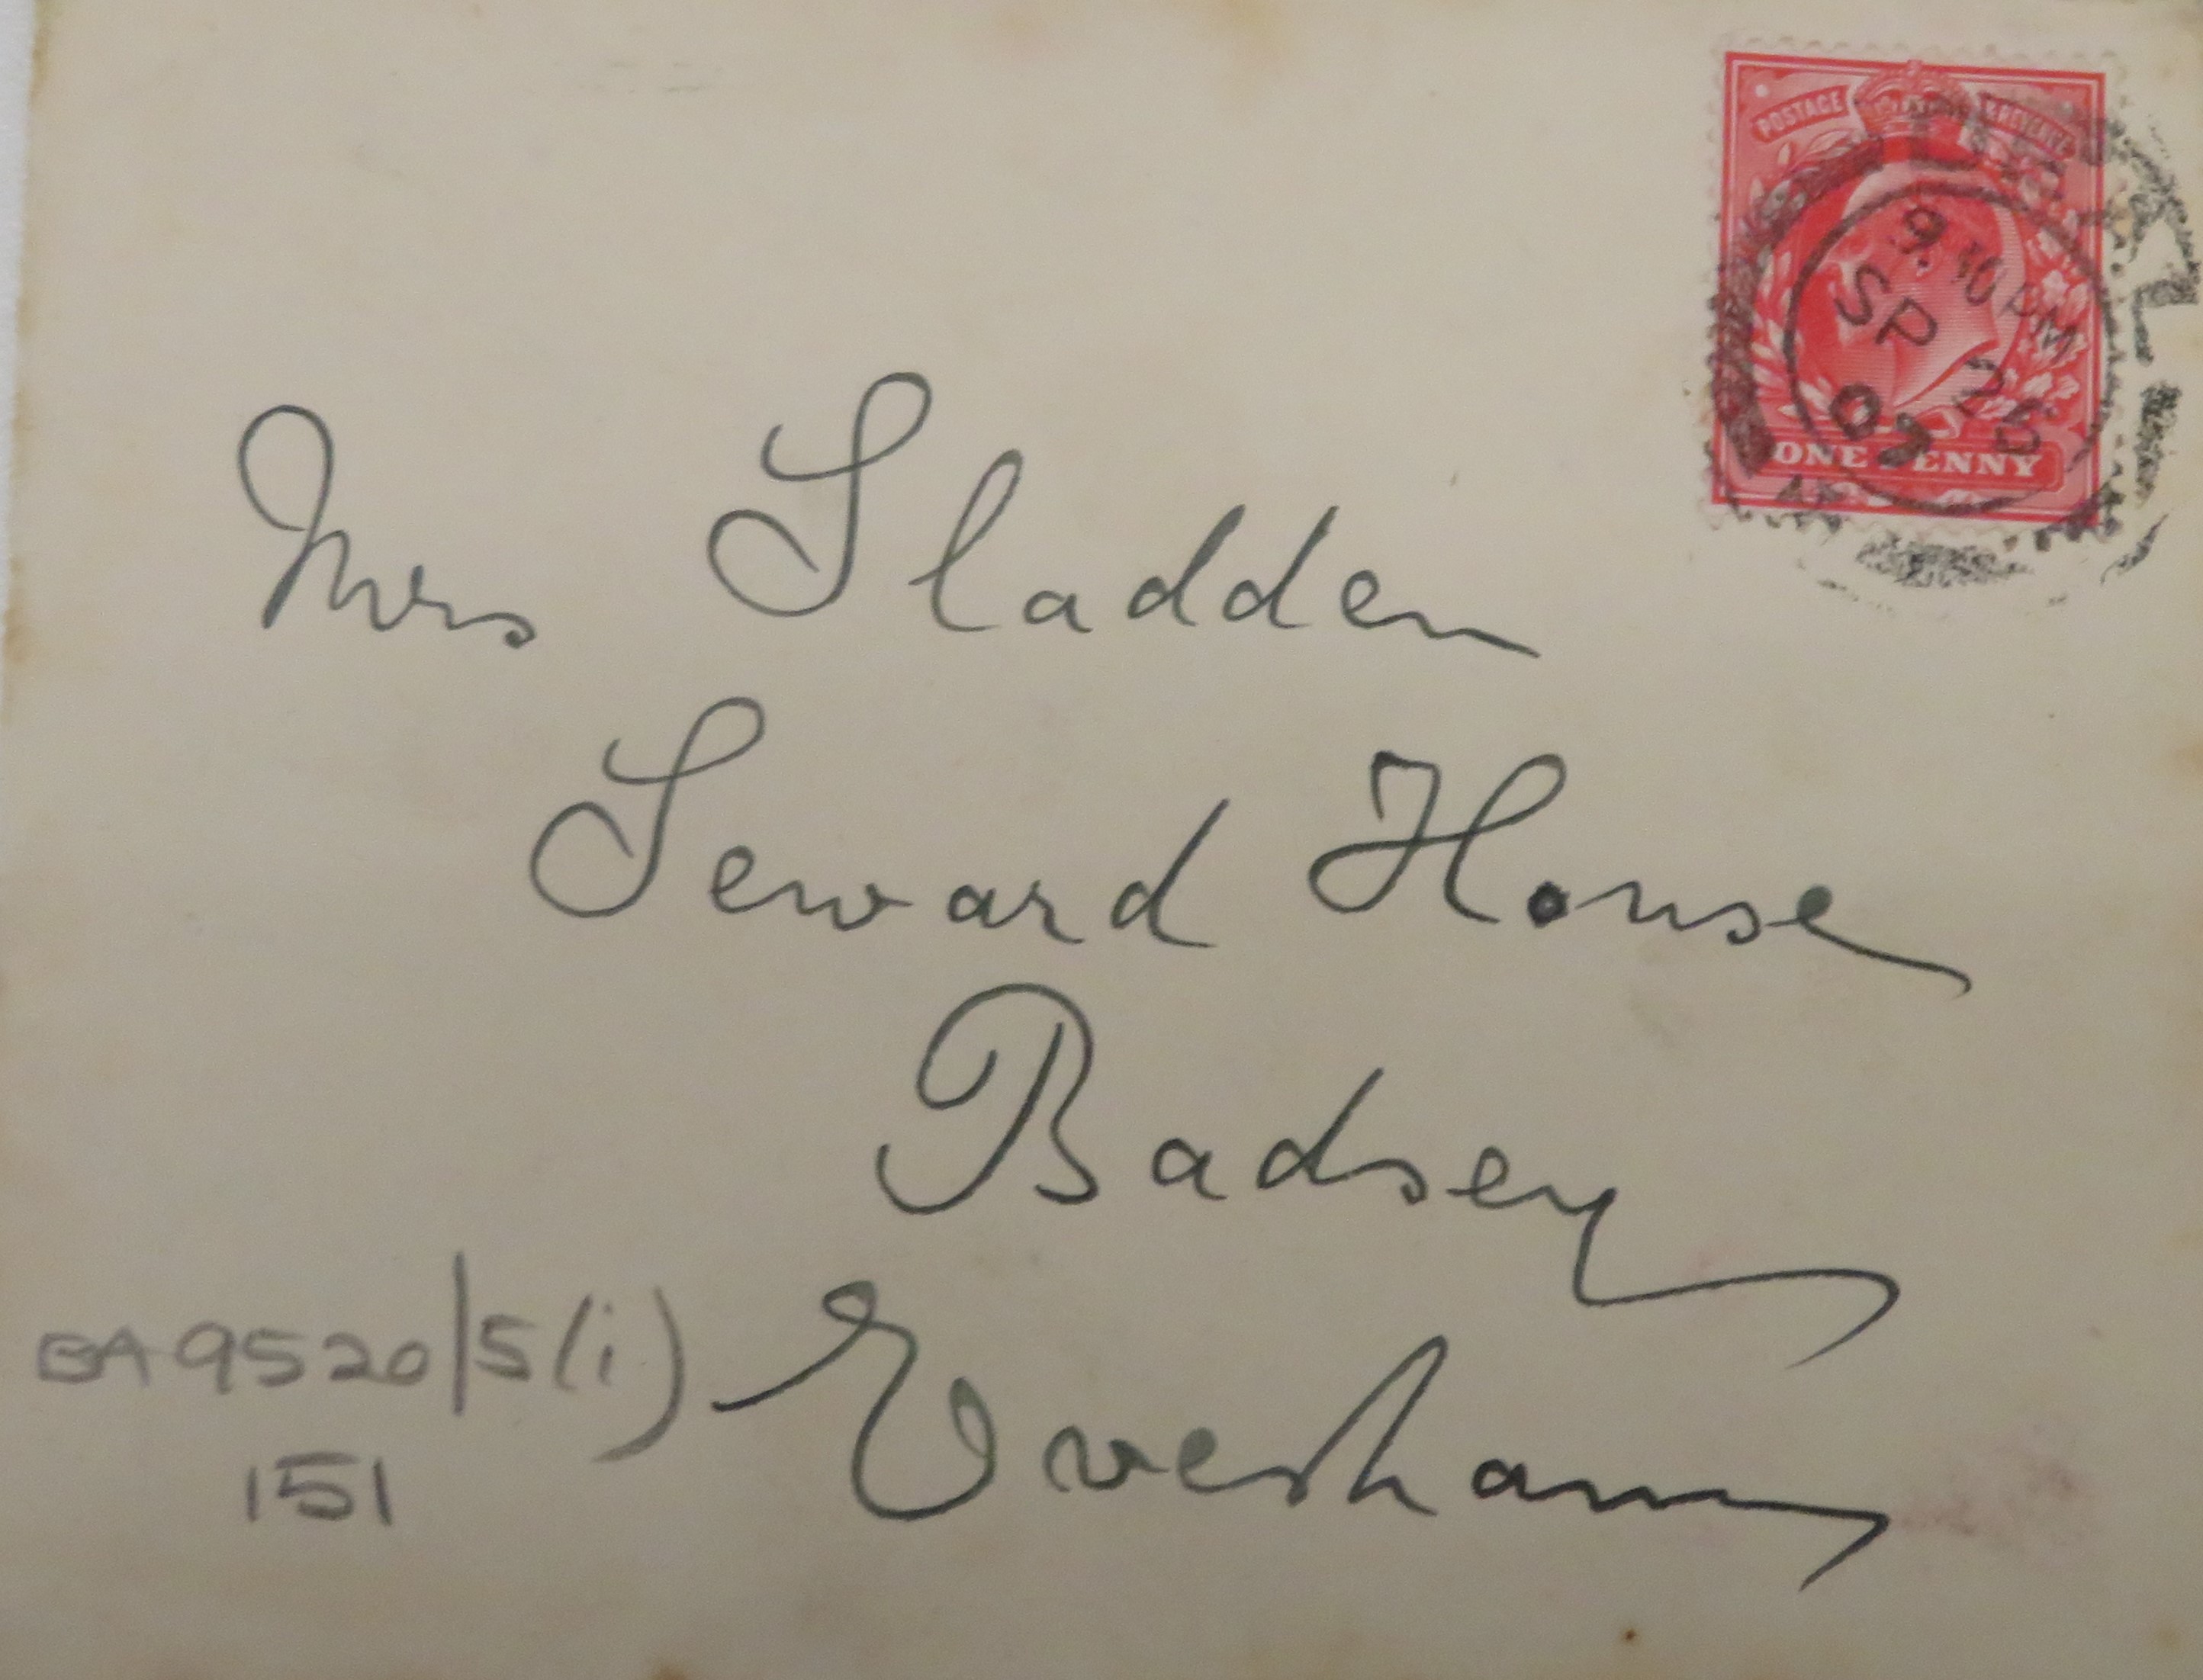 POSTAGE & REVENUE
9.30 PM
SP 25
07
ONE PENNY
Mrs Sladden
Seward House
Badsey
Evesham
BA9520/5(i)
151